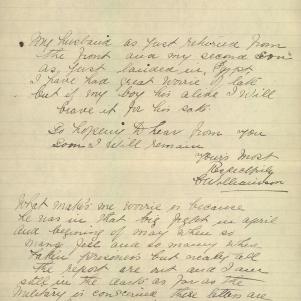 My husband as just returned from
the front and my second son
as just landed in Egypt
I have had great worrie of late
but if my boy his alive I will
brave it for his sake
So hopeing to hear from you
soon I will remain
Yours Most
Respectfully
Williamson
What make's me worrie is because
he was in that big fight in april
and begining of may when so
many fell and so many where
taken prisoners but nearly all
the report are out and I am
still in the dark as far as the
Military is concerned there letters are